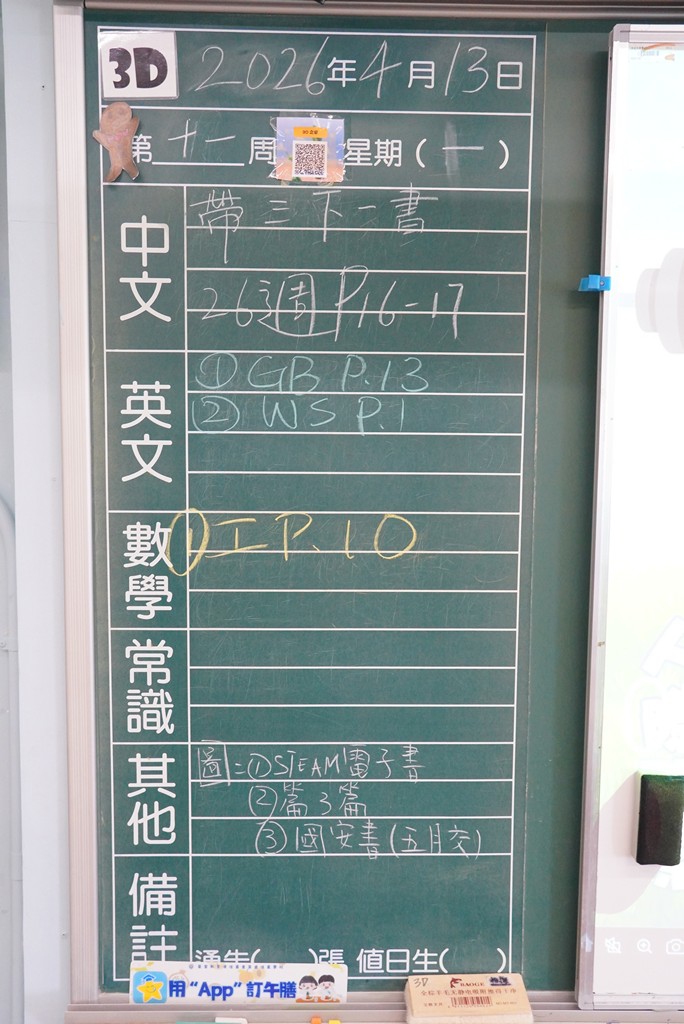 3D 2026年4月13日
第十一周 星期(一)
中文
帶三下一書
26週 P.16-17
英文
① GB P.13
② WS P.1
數學
① 工 P.10
常識
其他
圖:①STEAM電子書
②篇3篇
③國安書(五月交)
備註
通告( )張 值日生( )
用"App"訂午膳
3D